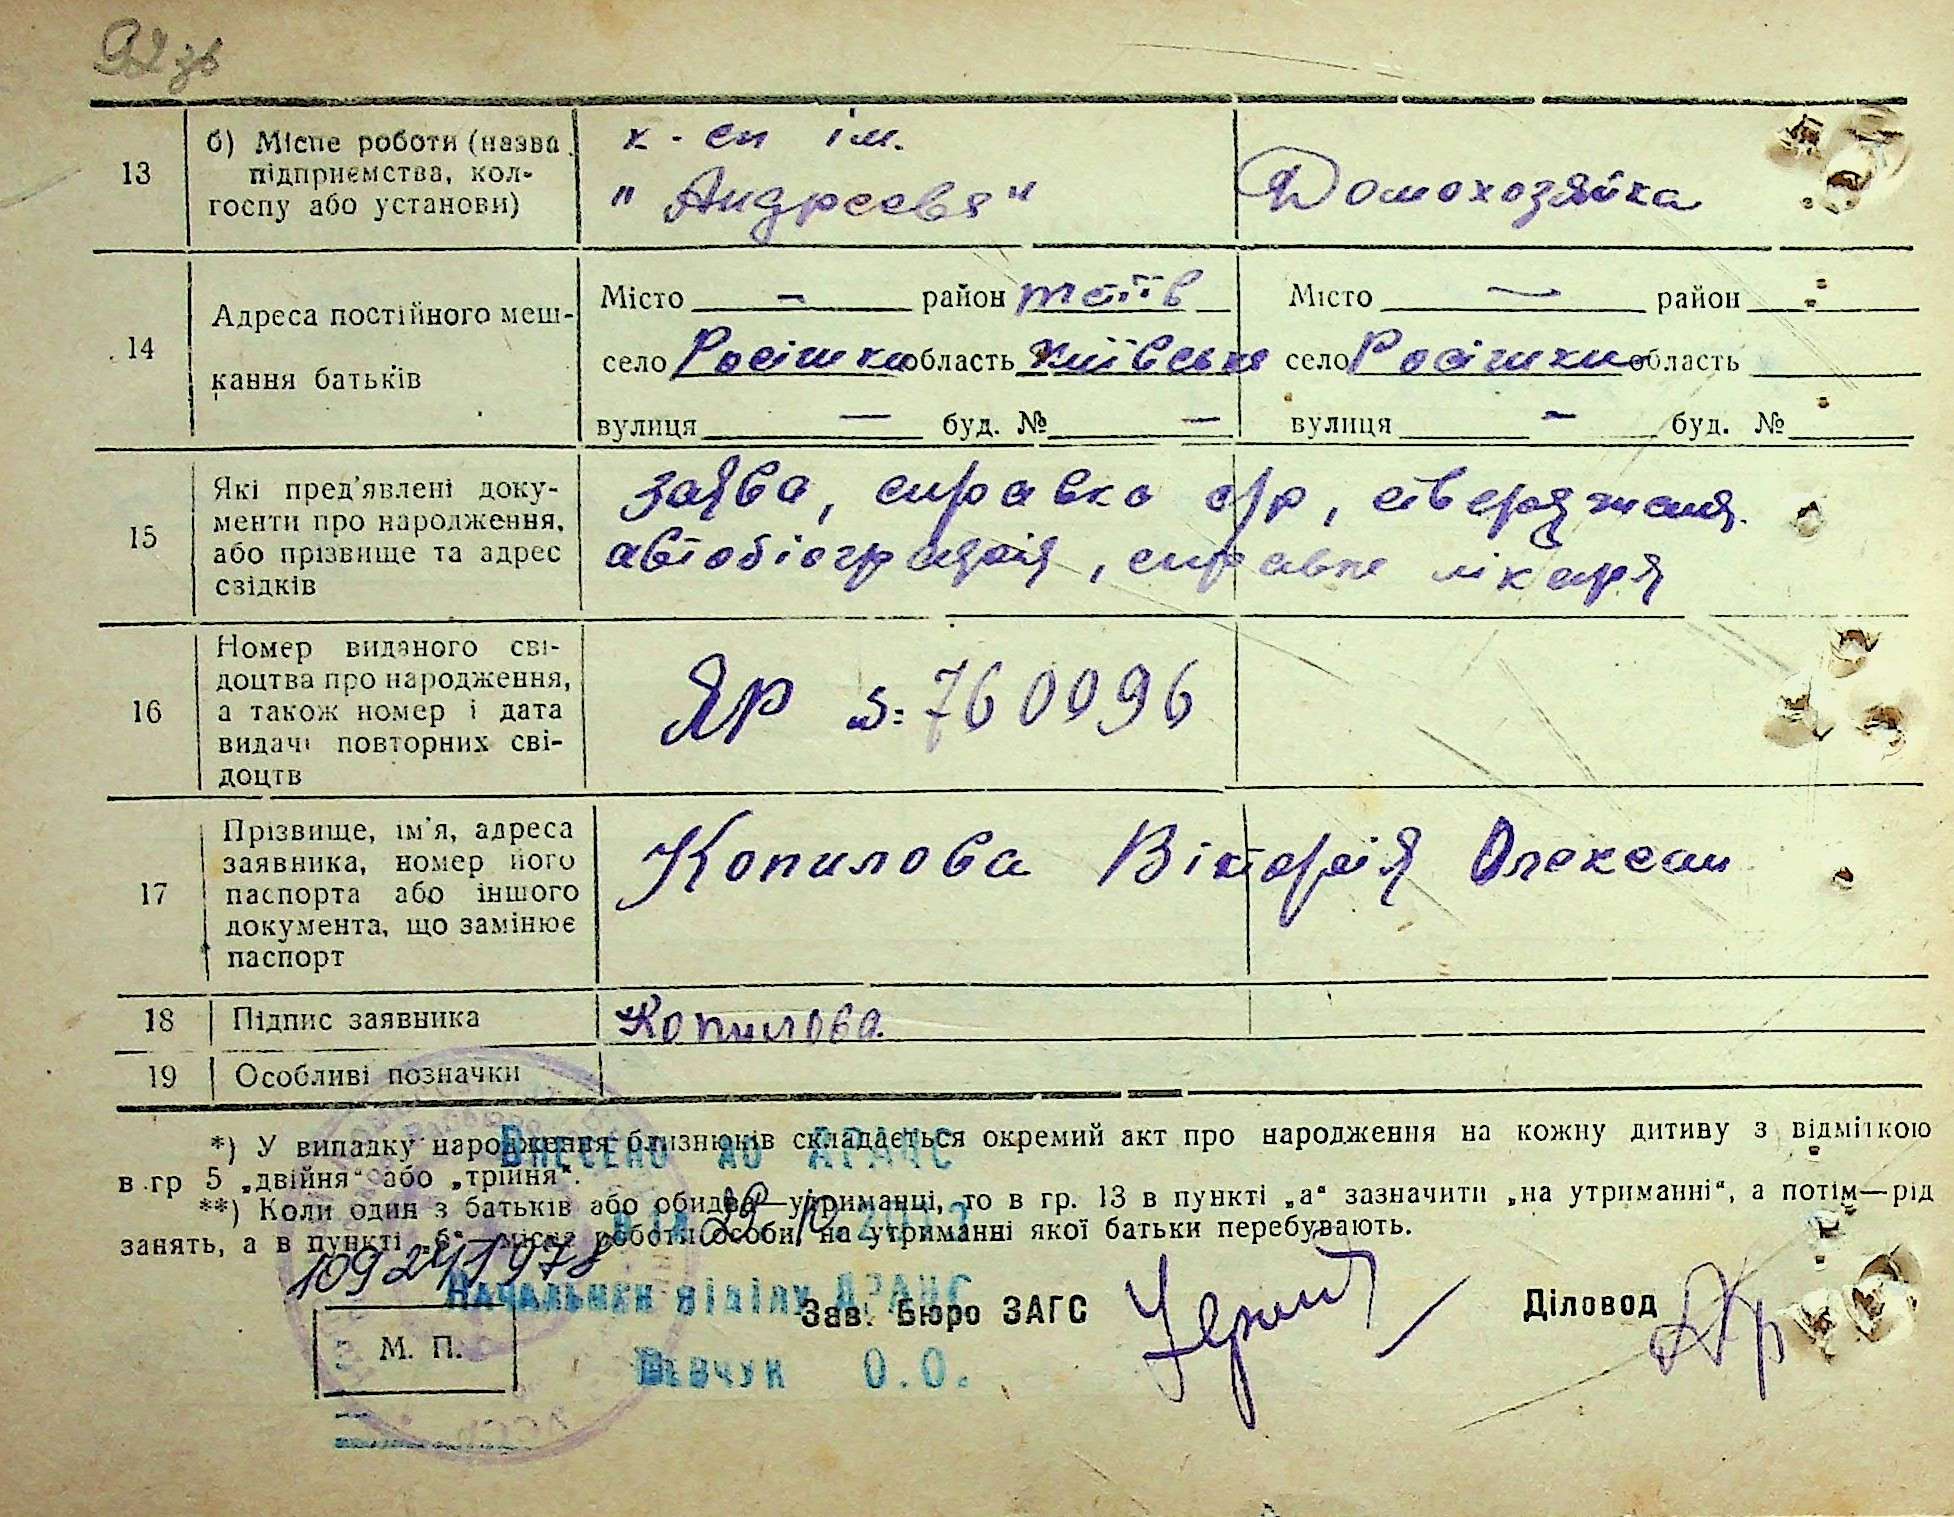 92 зв
13
б) Місце роботи (назва підприємства, колгоспу або установи)
к-сп ім. "Андреєва"
Домохозяйка
14
Адреса постійного мешкання батьків
Місто — район тетіїв
село Росішки область Київська
вулиця — буд. № —
Місто — район
село Росішки область
вулиця — буд. №
15
Які пред'явлені документи про народження, або прізвище та адрес свідків
заява, справка с/р, ствердження
автобіографія, справка лікаря
16
Номер виданого свідоцтва про народження, а також номер і дата видачі повторних свідоцтв
ЯР 760096
17
Прізвище, ім'я, адреса заявника, номер його паспорта або іншого документа, що замінює паспорт
Копилова Вікторія Олексан
18
Підпис заявника
Копилова
19
Особливі позначки
*) У випадку народження близнюків складається окремий акт про народження на кожну дитину з відміткою
в гр 5 „двійня“ або „трійня“.
**) Коли один з батьків або обидва—утриманці, то в гр. 13 в пункті „а“ зазначити „на утриманні“, а потім—рід
занять, а в пункті „б“—місце роботи особи, на утриманні якої батьки перебувають.
Внесено до ДРАЦС
Начальник відділу ДРАЦС
Шевчук О.О.
М. П.
Зав. Бюро ЗАГС
Діловод